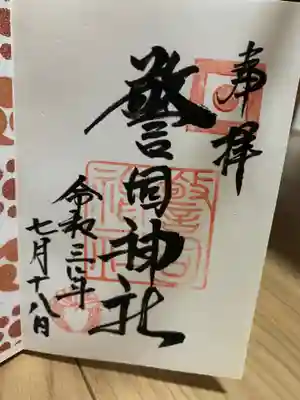 奉拝
警固神社
令和三年
七月十八日